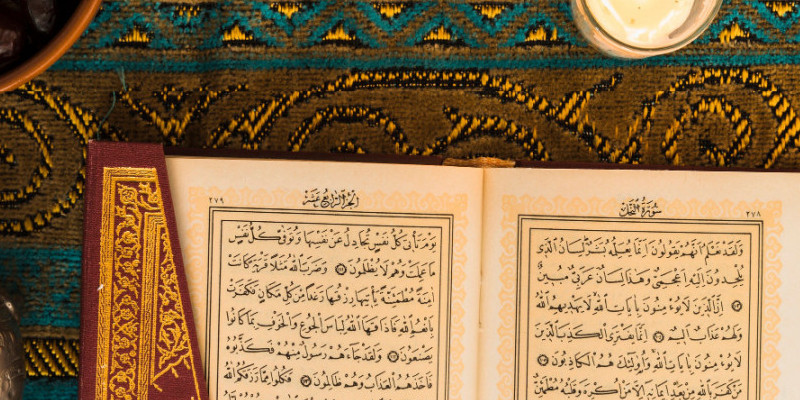 سُورَةُ النَّحْلِ ٢٧٨
وَلَقَدْ نَعْلَمُ أَنَّهُمْ يَقُولُونَ إِنَّمَا يُعَلِّمُهُ بَشَرٌ لِسَانُ الَّذِي
يُلْحِدُونَ إِلَيْهِ أَعْجَمِيٌّ وَهَذَا لِسَانٌ عَرَبِيٌّ مُبِينٌ
﴿١٠٣﴾ إِنَّ الَّذِينَ لَا يُؤْمِنُونَ بِآيَاتِ اللَّهِ لَا يَهْدِيهِمُ اللَّهُ
وَلَهُمْ عَذَابٌ أَلِيمٌ ﴿١٠٤﴾ إِنَّمَا يَفْتَرِي الْكَذِبَ الَّذِينَ
لَا يُؤْمِنُونَ بِآيَاتِ اللَّهِ وَأُولَئِكَ هُمُ الْكَاذِبُونَ ﴿١٠٥﴾
مَنْ كَفَرَ بِاللَّهِ مِنْ بَعْدِ إِيمَانِهِ إِلَّا مَنْ أُكْرِهَ وَقَلْبُهُ مُطْمَئِنٌّ
الْجُزْءُ الرَّابِعَ عَشَرَ ٢٧٩
يَوْمَ تَأْتِي كُلُّ نَفْسٍ تُجَادِلُ عَنْ نَفْسِهَا وَتُوَفَّى كُلُّ نَفْسٍ
مَا عَمِلَتْ وَهُمْ لَا يُظْلَمُونَ ﴿١١١﴾ وَضَرَبَ اللَّهُ مَثَلًا قَرْيَةً كَانَتْ
آمِنَةً مُطْمَئِنَّةً يَأْتِيهَا رِزْقُهَا رَغَدًا مِنْ كُلِّ مَكَانٍ فَكَفَرَتْ
بِأَنْعُمِ اللَّهِ فَأَذَاقَهَا اللَّهُ لِبَاسَ الْجُوعِ وَالْخَوْفِ بِمَا كَانُوا
يَصْنَعُونَ ﴿١١٢﴾ وَلَقَدْ جَاءَهُمْ رَسُولٌ مِنْهُمْ فَكَذَّبُوهُ
فَأَخَذَهُمُ الْعَذَابُ وَهُمْ ظَالِمُونَ ﴿١١٣﴾ فَكُلُوا مِمَّا رَزَقَكُمُ اللَّهُ